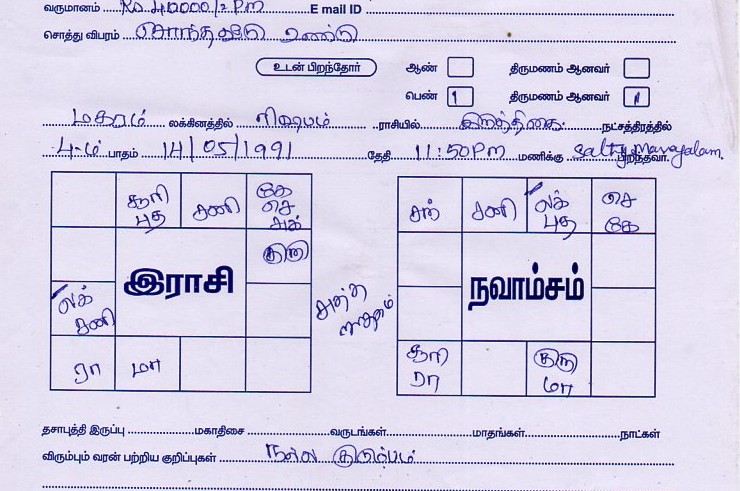 வருமானம் Rs 40000/2Pm E mail ID
சொத்து விபரம் சொந்தவீடு உண்டு
உடன் பிறந்தோர் ஆண் திருமணம் ஆனவர்
பெண் 1 திருமணம் ஆனவர் 1
மகரம் லக்கினத்தில் ரிஷபம் ராசியில் கிருத்திகை நட்சத்திரத்தில்
4-ம் பாதம் 14/05/1991 தேதி 11:50Pm மணிக்கு பிறந்தவர்.
சூரி புத சனி கே செ சுக்
குரு
இராசி
லக் சனி
ரா மா
சனி லக் புத செ கே
நவாம்சம்
சூரி ரா குரு மா
தசாபுத்தி இருப்பு மகாதிசை வருடங்கள் மாதங்கள் நாட்கள்
விரும்பும் வரன் பற்றிய குறிப்புகள் நல்ல குடும்பம்